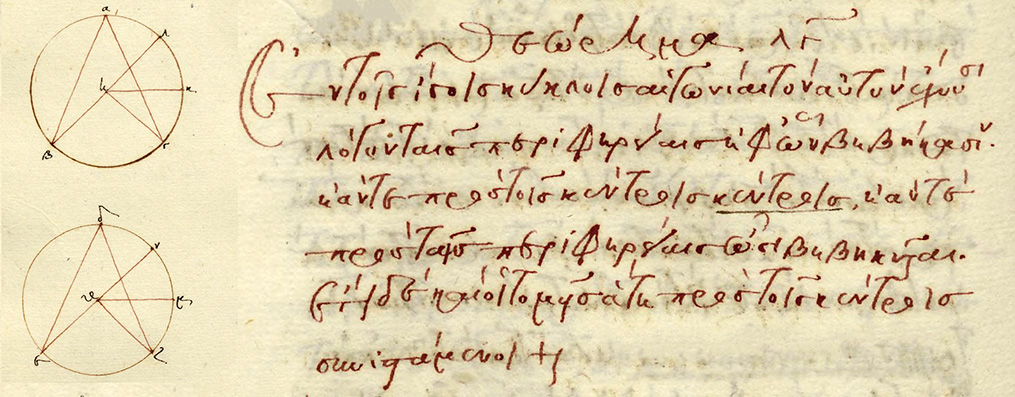 α
λ
η
κ
β
γ
δ
ν
θ
μ
ε
ζ
Θεώρημα λγ
Ἐν τοῖς ἴσοις κύκλοις αἱ γωνίαι τὸν αὐτὸν ἔχουσι
λόγον ταῖς περιφερείαις ἐφ' ὧν βεβήκασιν.
κἄν τε πρὸς τοῖς κέντροις κέντροις, κἄν τε
πρὸς ταῖς περιφερείαις ὦσι βεβηκυῖαι.
ἔτι δὲ καὶ οἱ τομεῖς ἅτε πρὸς τοῖς κέντροις
συνιστάμενοι